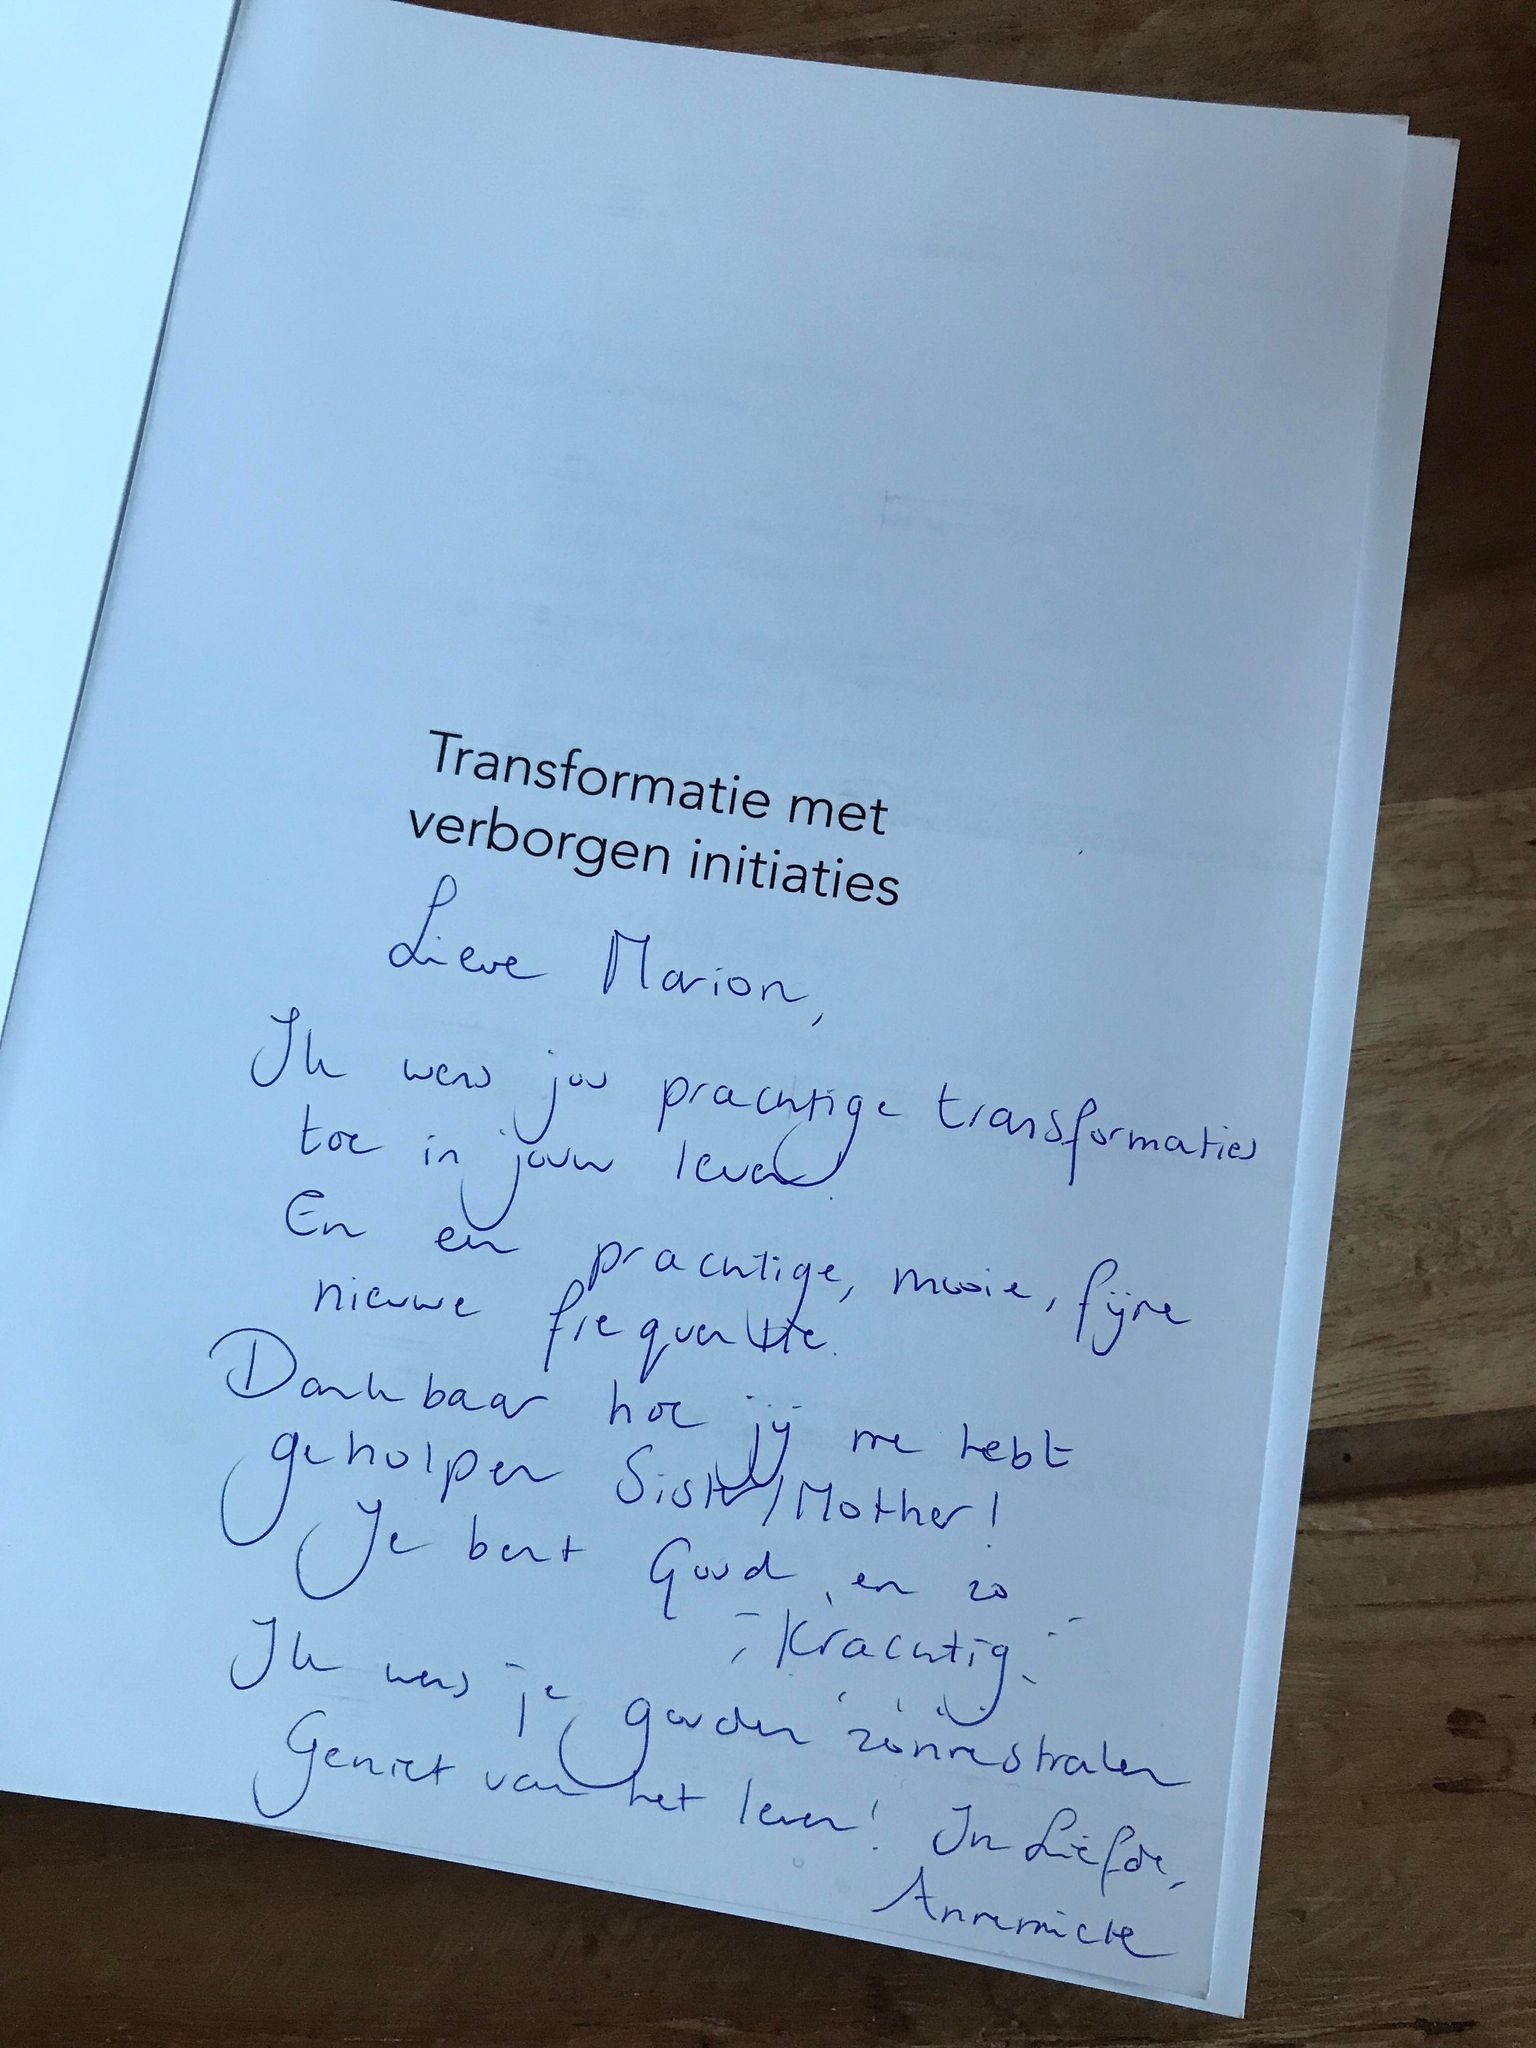 Transformatie met
verborgen initiaties
Lieve Marion,
Ik wens jou prachtige transformaties
toe in jouw leven.
En een prachtige, mooie, fijne
nieuwe frequentie.
Dankbaar hoe jij me hebt
geholpen Sister/Mother!
Je bent Goud en zo
krachtig.
Ik wens je gouden zonnestralen
Geniet van het leven! In Liefde,
Annemieke